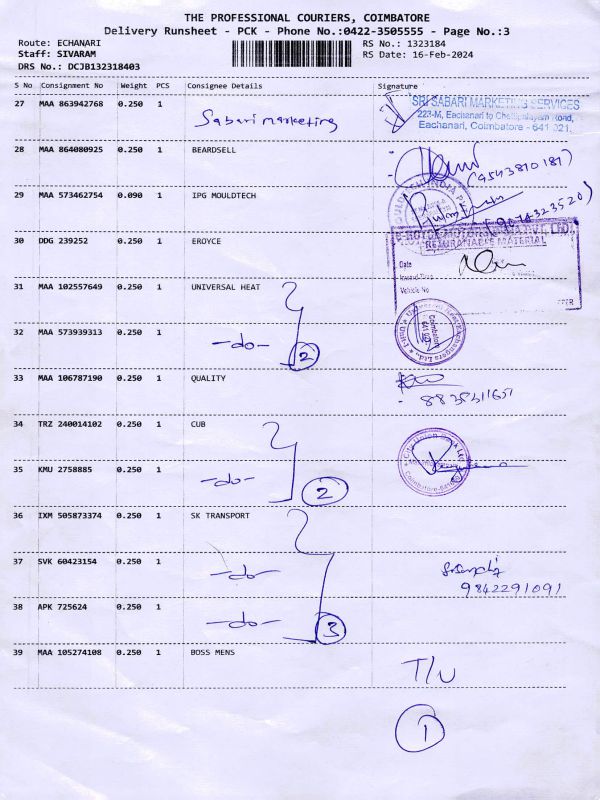 THE PROFESSIONAL COURIERS, COIMBATORE
Delivery Runsheet - PCK - Phone No.:0422-3505555 - Page No.:3
Route: ECHANARI RS No.: 1323184
Staff: SIVARAM RS Date: 16-Feb-2024
DRS No.: DCJB132318403
S No Consignment No Weight PCS Consignee Details Signature
27 MAA 863942768 0.250 1 Sabari marketing
SRI SABARI MARKETING SERVICES
223-M, Eachanari to Chettipalayam Road,
Eachanari, Coimbatore - 641 021.
28 MAA 864080925 0.250 1 BEARDSELL
(9543810181)
29 MAA 573462754 0.090 1 IPG MOULDTECH
(9074323520)
30 DDG 239252 0.250 1 EROYCE
Date
Vehicle No
31 MAA 102557649 0.250 1 UNIVERSAL HEAT
32 MAA 573939313 0.250 1 -do- 2
Coimbatore
33 MAA 106787190 0.250 1 QUALITY
34 TRZ 240014102 0.250 1 CUB
City Union Bank Ltd
35 KMU 2758885 0.250 1 -do- 2
36 IXM 505873374 0.250 1 SK TRANSPORT
37 SVK 60423154 0.250 1 -do-
9842291091
38 APK 725624 0.250 1 -do- 3
39 MAA 105274108 0.250 1 BOSS MENS T/U
1